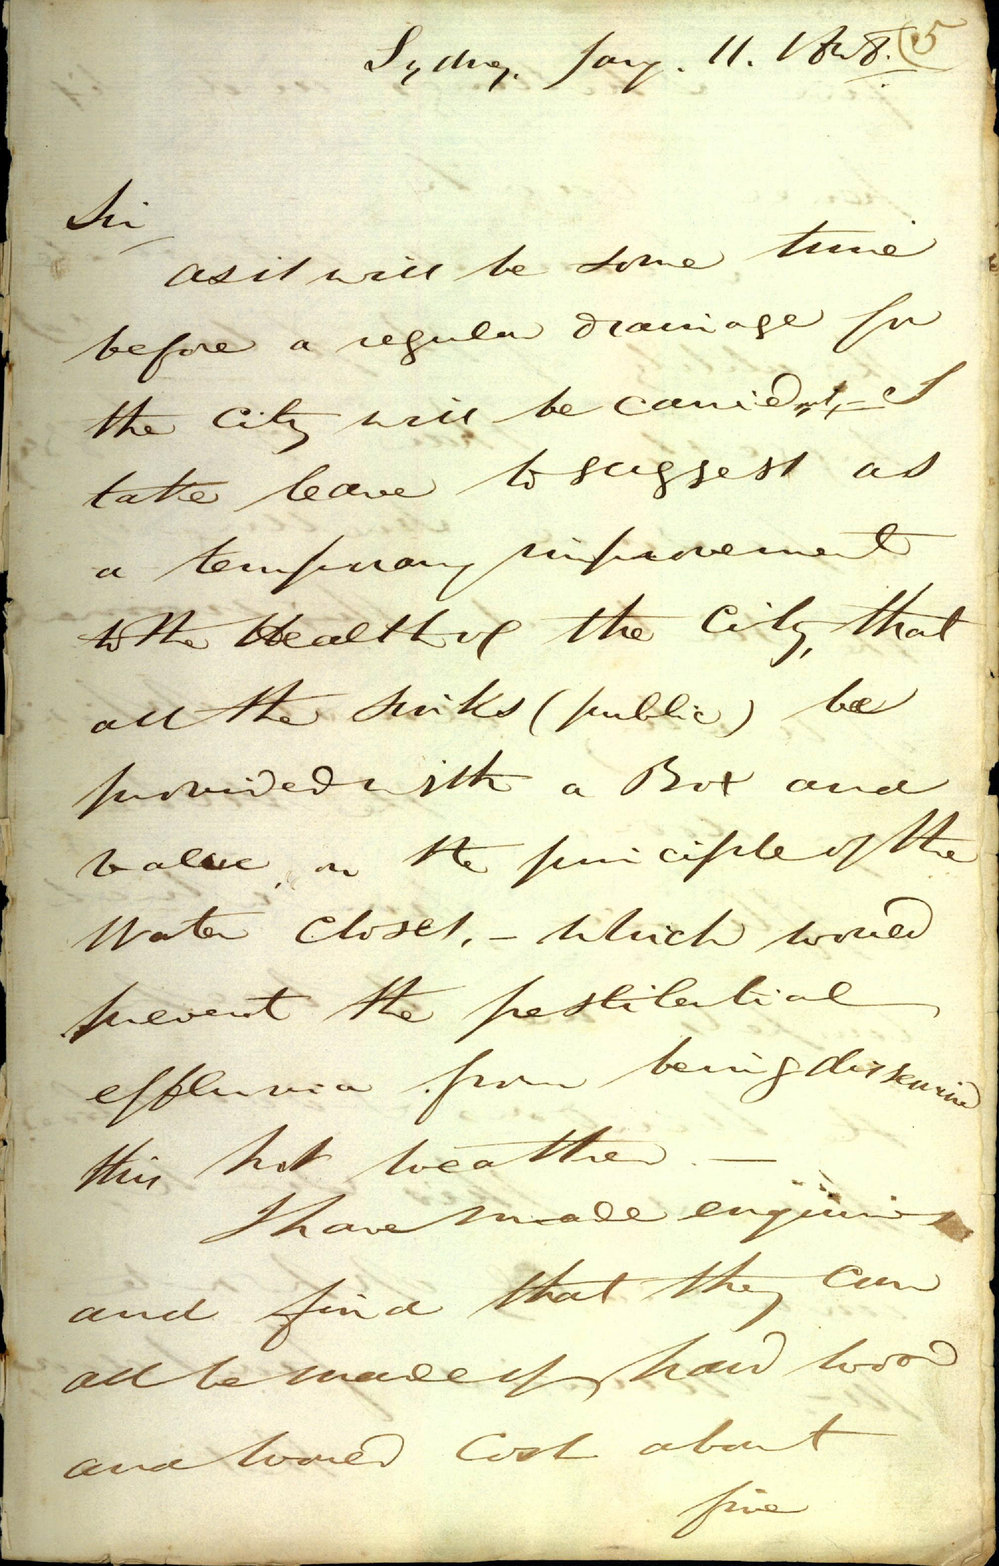 Sydney. Jany. 11. 1848. (5
Sir
as it will be some time
before a regular drainage for
the City will be carried out, – I
take leave to suggest as
a temporary improvement
to the Health of the City, that
all the sinks (public) be
provided with a Box and
valve, on the principle of the
Water Closet, – which would
prevent the pestilential
effluvia from being
this hot weather. –
I have made enquiries
and find that they can
all be made of hard wood
and would cost about
five